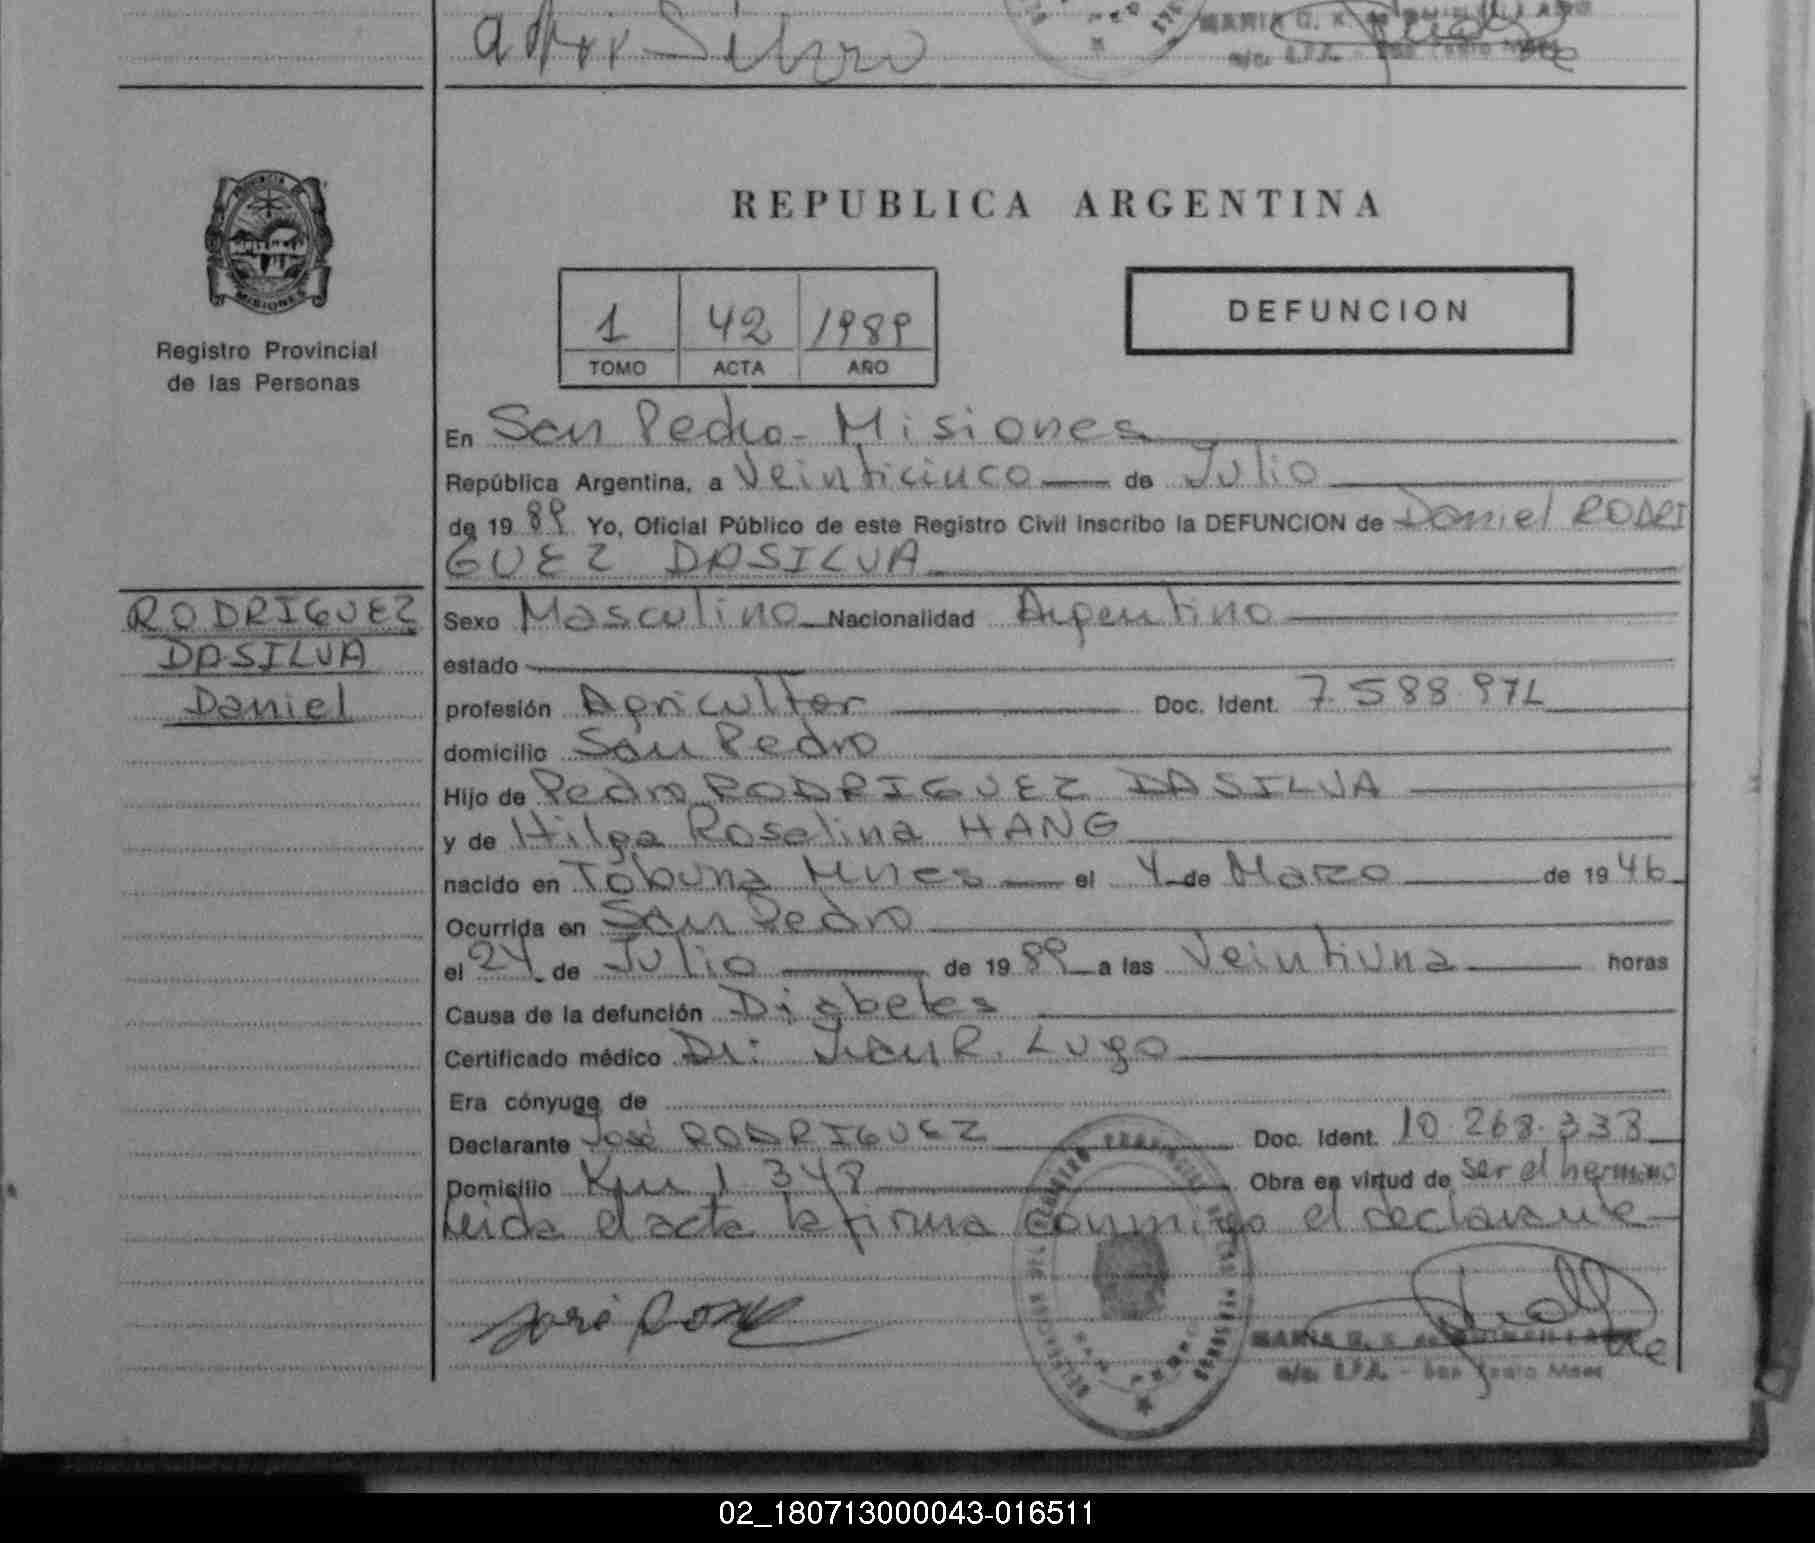 REPUBLICA ARGENTINA
Registro Provincial
de las Personas
1 42 1989
TOMO ACTA AÑO
DEFUNCION
En San Pedro - Misiones
República Argentina, a Veinticinco de Julio
de 19 89 Yo, Oficial Público de este Registro Civil inscribo la DEFUNCION de Daniel RODRI
GUEZ DASILVA
RODRIGUEZ
DASILVA
Daniel
Sexo Masculino Nacionalidad Argentino
estado
profesión Agricultor Doc. Ident. 7.588.971
domicilio San Pedro
Hijo de Pedro RODRIGUEZ DASILVA
y de Hilga Roselina HANG
nacido en Tobuna Mnes el 4 de Marzo de 19 46
Ocurrida en San Pedro
el 24 de Julio de 19 89 a las Veintiuna horas
Causa de la defunción Diabetes
Certificado médico Dr: Juan R. Lugo
Era cónyuge de
Declarante José RODRIGUEZ Doc. Ident. 10.268.338
Domicilio Km 1.348 Obra en virtud de ser el hermano
Leida el acta la firma conmigo el declarante
José
02_180713000043-016511